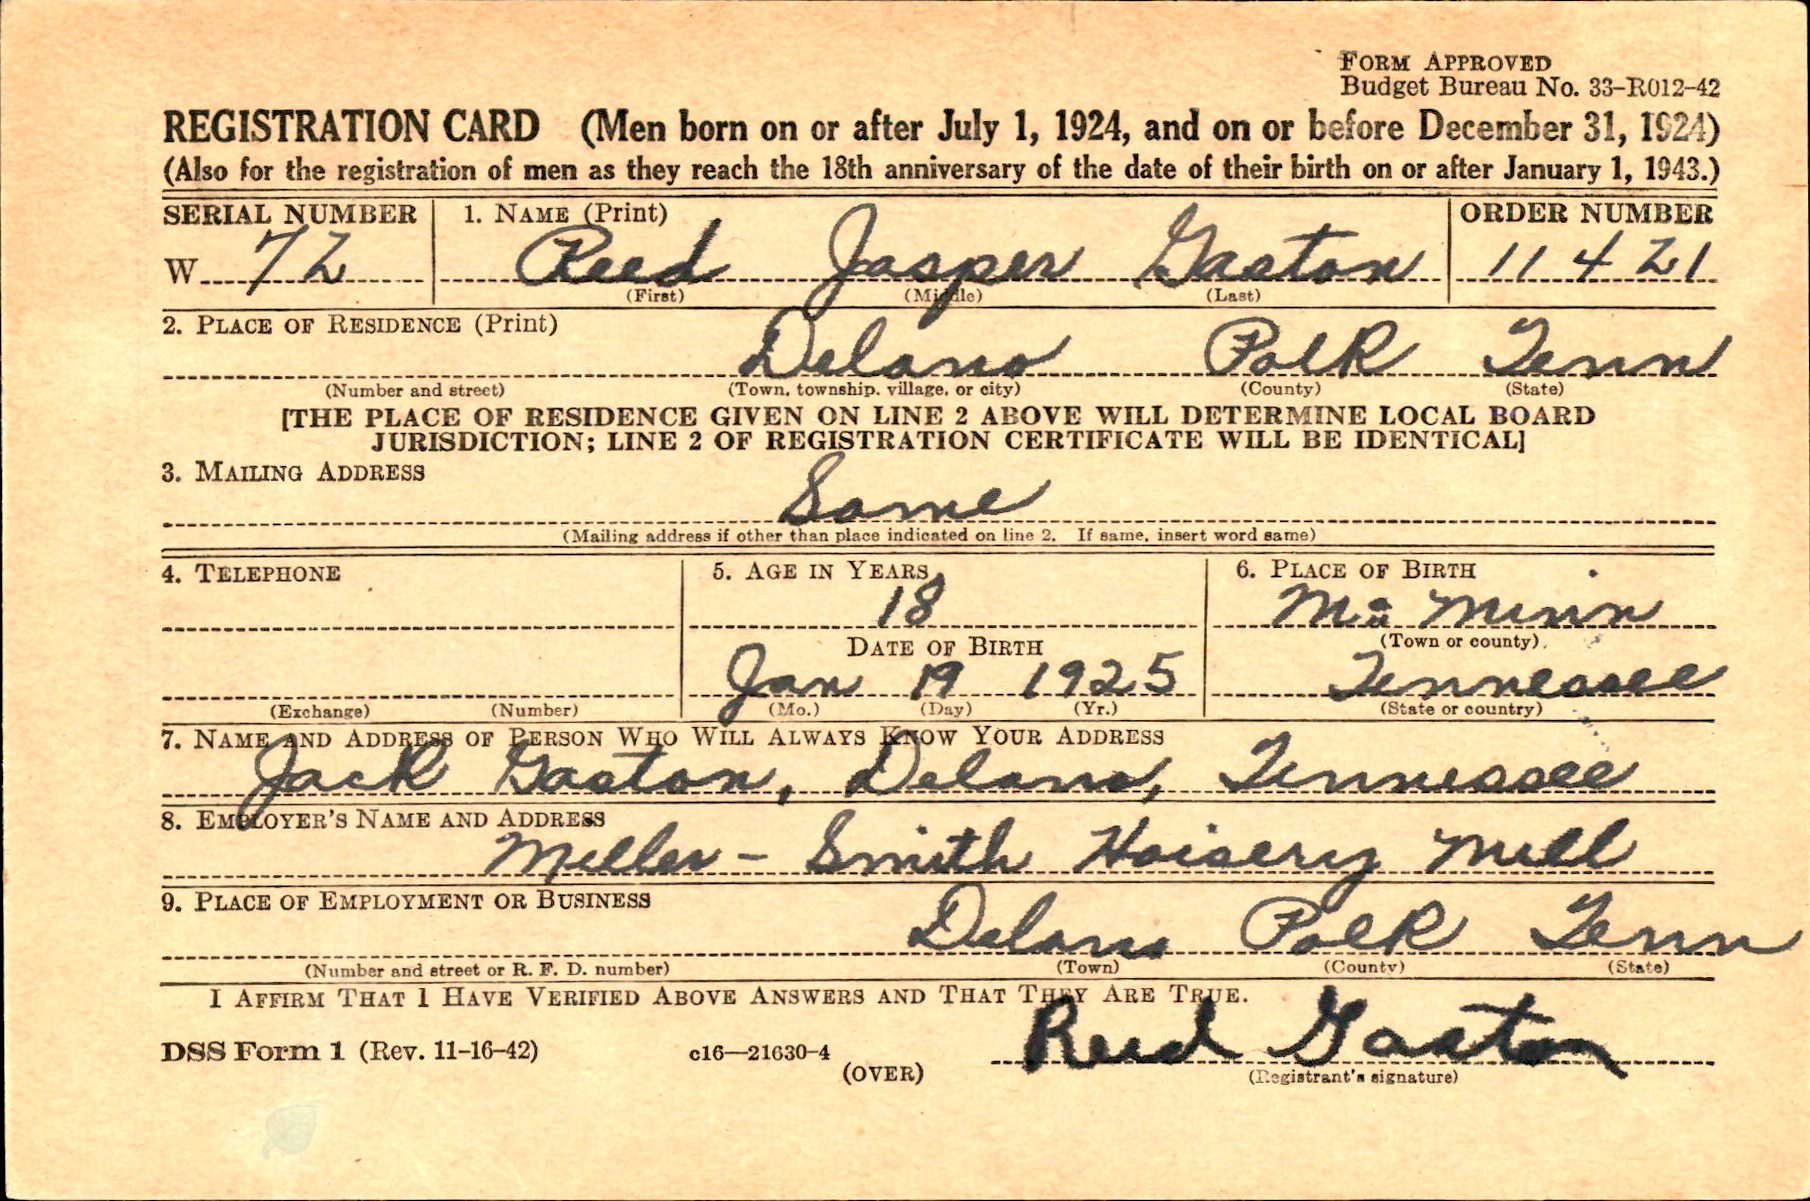 FORM APPROVED
Budget Bureau No. 33–R012–42
REGISTRATION CARD (Men born on or after July 1, 1924, and on or before December 31, 1924)
(Also for the registration of men as they reach the 18th anniversary of the date of their birth on or after January 1, 1943.)
SERIAL NUMBER 1. NAME (Print) ORDER NUMBER
W 72 Reed Jasper Gaston 11421
(First) (Middle) (Last)
2. PLACE OF RESIDENCE (Print)
Delano Polk Tenn
(Number and street) (Town, township, village, or city) (County) (State)
[THE PLACE OF RESIDENCE GIVEN ON LINE 2 ABOVE WILL DETERMINE LOCAL BOARD
JURISDICTION; LINE 2 OF REGISTRATION CERTIFICATE WILL BE IDENTICAL]
3. MAILING ADDRESS
Same
(Mailing address if other than place indicated on line 2. If same, insert word same)
4. TELEPHONE 5. AGE IN YEARS 6. PLACE OF BIRTH
18 Mc Minn
DATE OF BIRTH (Town or county)
Jan 19 1925 Tennessee
(Exchange) (Number) (Mo.) (Day) (Yr.) (State or country)
7. NAME AND ADDRESS OF PERSON WHO WILL ALWAYS KNOW YOUR ADDRESS
Jack Gaston, Delano, Tennessee
8. EMPLOYER'S NAME AND ADDRESS
Miller – Smith Hoisery Mill
9. PLACE OF EMPLOYMENT OR BUSINESS
Delano Polk Tenn
(Number and street or R. F. D. number) (Town) (County) (State)
I AFFIRM THAT I HAVE VERIFIED ABOVE ANSWERS AND THAT THEY ARE TRUE.
Reed Gaston
DSS Form 1 (Rev. 11-16-42) c16—21630-4
(OVER) (Registrant's signature)